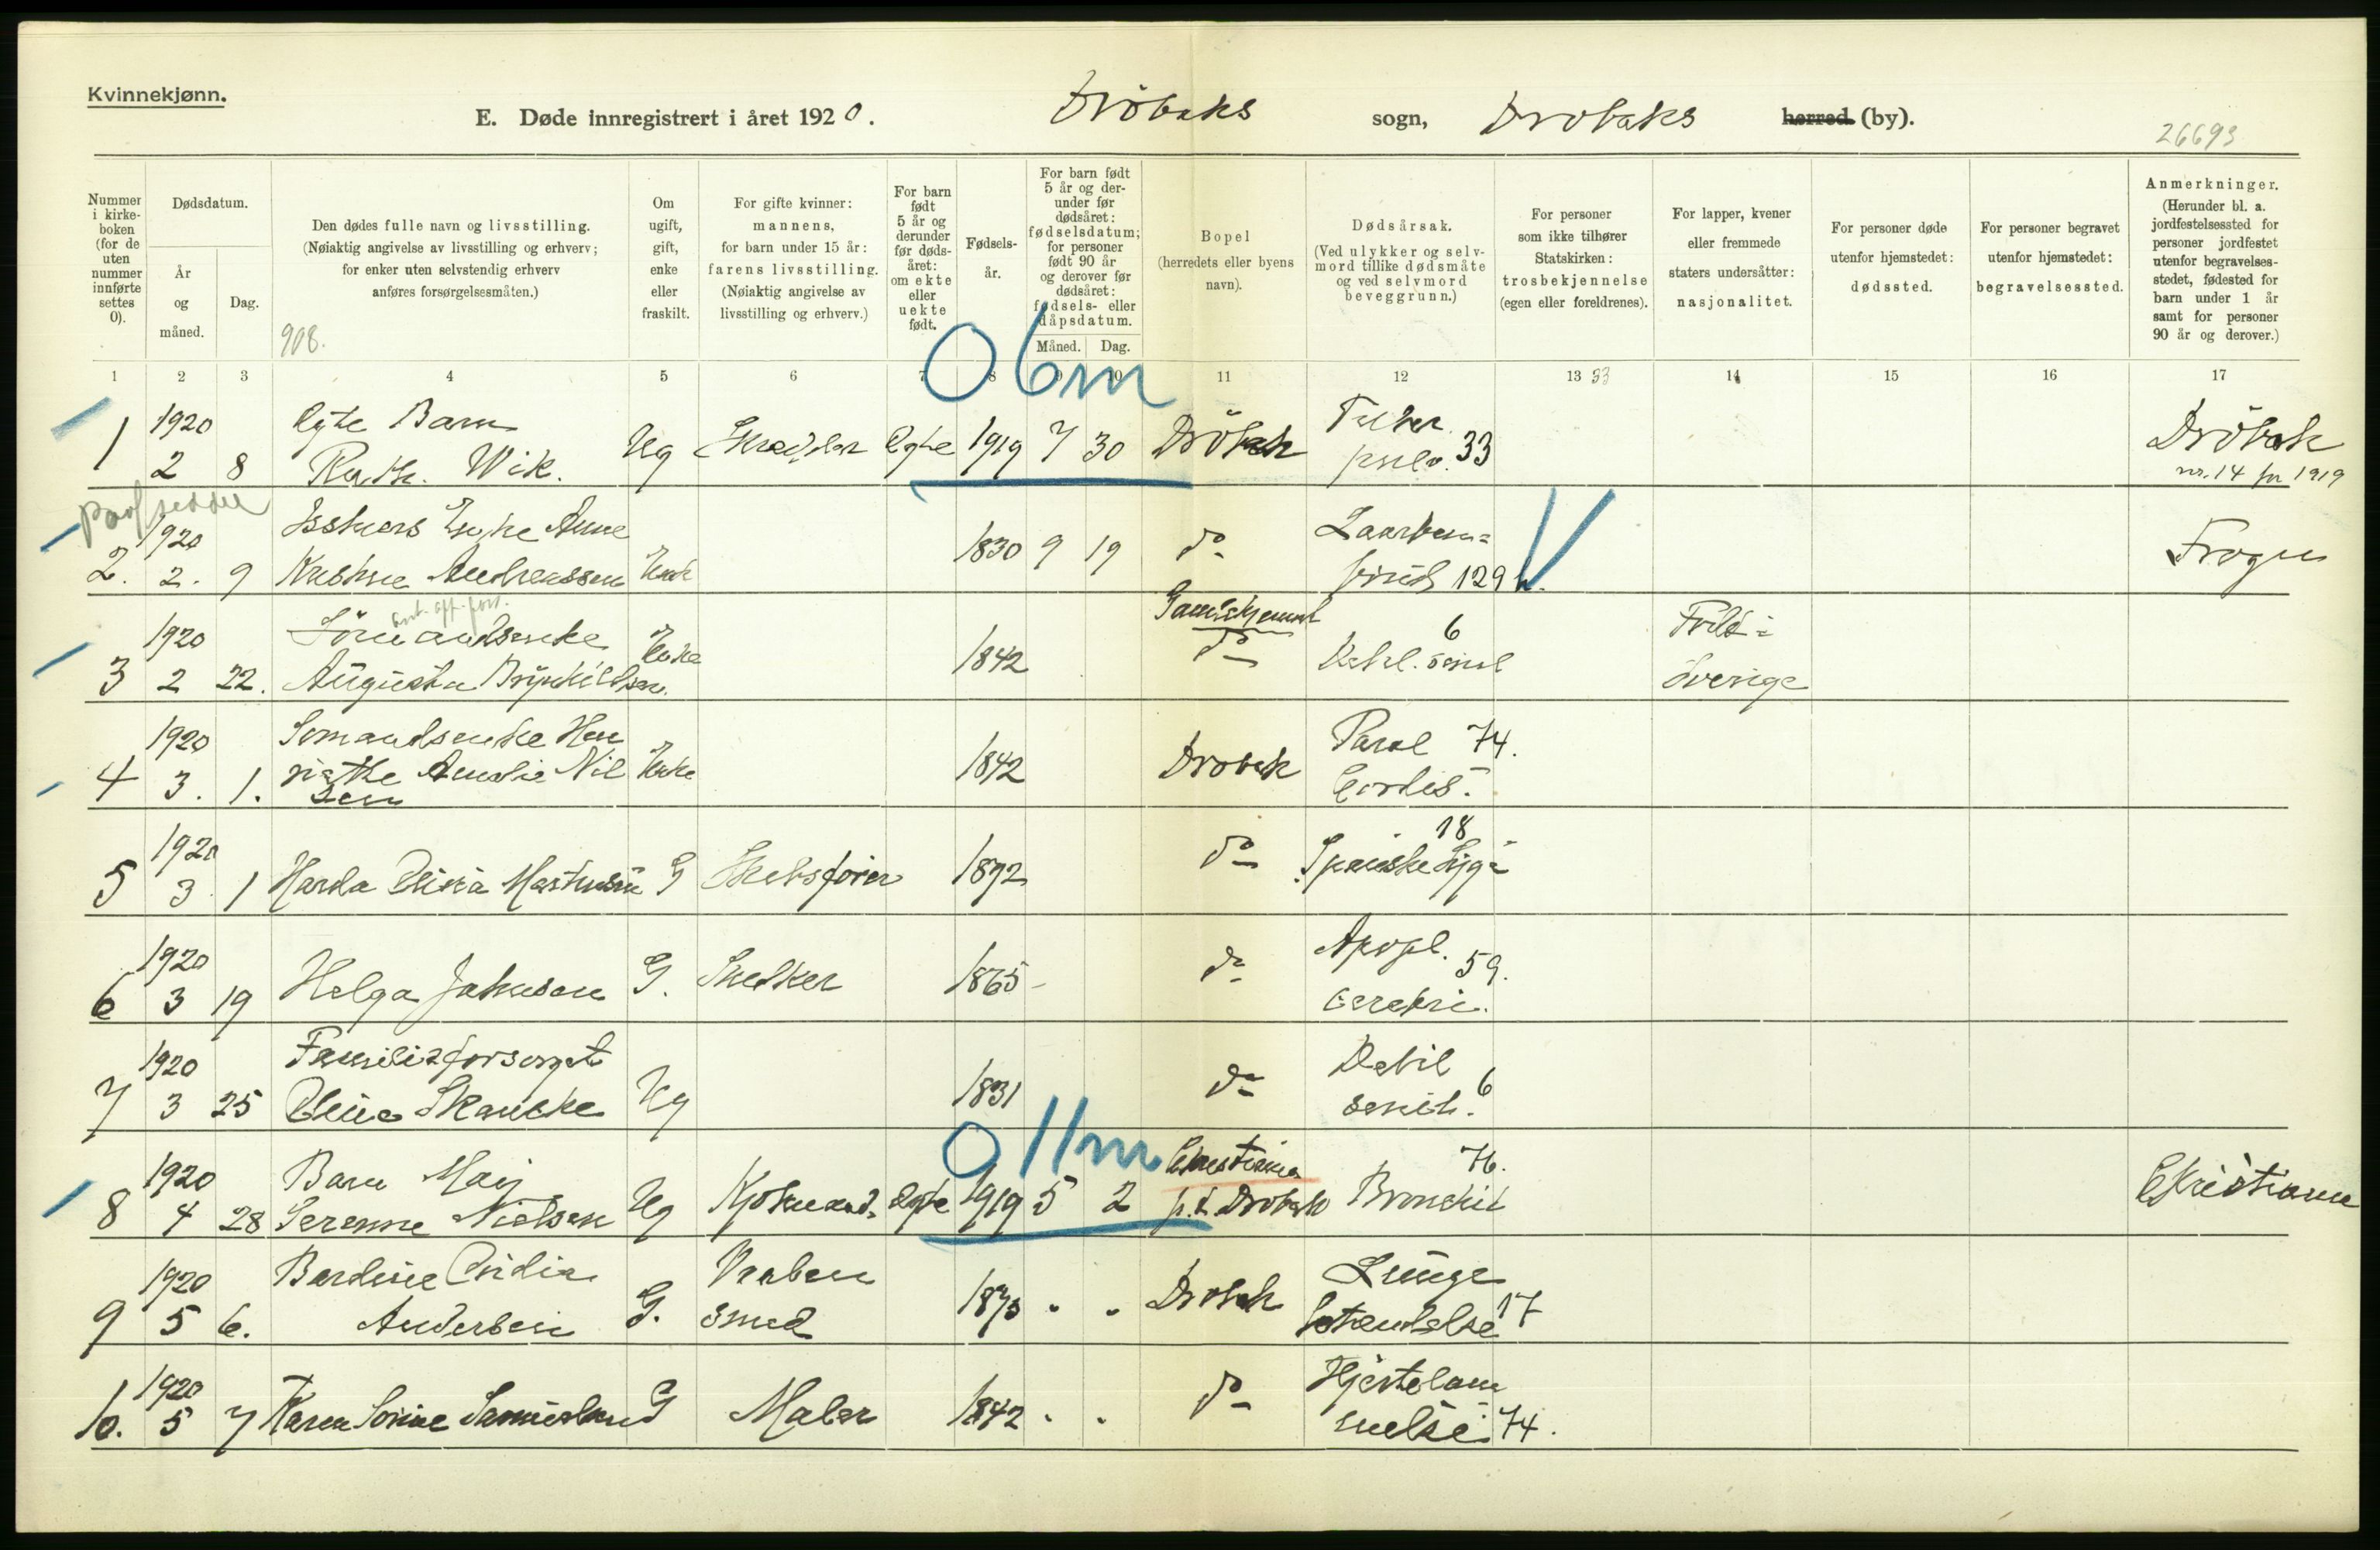 Kvinnekjønn.
E. Døde innregistrert i året 1920. Dröbaks sogn, Drobaks herred (by).
26693
Nummer i kirke-boken (for de uten nummer innførte settes 0).
Dødsdatum.
År og måned.
Dag.
Den dødes fulle navn og livsstilling.
(Nøiaktig angivelse av livsstilling og erhverv;
for enker uten selvstendig erhverv
anføres forsørgelsesmåten.)
908.
Om ugift, gift, enke eller fraskilt.
For gifte kvinner:
mannens,
for barn under 15 år:
farens livsstilling.
(Nøiaktig angivelse av
livsstilling og erhverv.)
For barn født 5 år og derunder før døds-året: om ekte eller uekte født.
Fødsels-år.
For barn født 5 år og der-under før dødsåret: fødselsdatum; for personer født 90 år og derover før dødsåret: fødsels- eller dåpsdatum.
Måned. Dag.
Bopel
(herredets eller byens
navn).
Dødsårsak.
(Ved ulykker og selv-
mord tillike dødsmåte
og ved selvmord
beveggrunn.)
For personer
som ikke tilhører
Statskirken:
trosbekjennelse
(egen eller foreldrenes).
For lapper, kvener
eller fremmede
staters undersåtter:
nasjonalitet.
For personer døde
utenfor hjemstedet:
dødssted.
For personer begravet
utenfor hjemstedet:
begravelsessted.
Anmerkninger.
(Herunder bl. a.
jordfestelsessted for
personer jordfestet
utenfor begravelses-
stedet, fødested for
barn under 1 år
samt for personer
90 år og derover.)
1 2 3 4 5 6 7 8 9 10 11 12 13 33 14 15 16 17
0 6 m
1 1920 2 8 Egte Barn
Ruth. Wik. Ug Egte 1919 7 30 Dröbak 33 Dröbak
nr. 14 for 1919
2. 1920 2. 9 Enke Anne
Andreassen Enke 1830 9 19 do 129 Frogn
3 1920 2 22. Sömandsenke
Augusta Brynhildsen. Enke 1842 Gamlehjemmet
do Debil. senil 6
Sverige
4 1920 3. 1. Somandsenke Hen
riette Amalie Nil
sen Enke 1842 Drobak Paral 74.
Cordis.
5 1920 3. 1 Harda Mathisen G Skibsfører 1892 do 18
Spanske Syg
6 1920 3 19 Helga Johnsen G. Snedker 1865 do Apopl. 59.
cerebri.
7 1920 3 25 Familieforsorget
Skancke Ug 1831 do Debil
senil. 6
0 11 m
8 1920 4 28 Barn Maij
Serenne Nielsen Ug Egte 1919 5 2 Christiania
p.t. Drobak 76.
Bronchit Christiania
9 1920 5 6. Berdine
Andersen G. Vaaben
smed Drobak Lunge
betændelse 17
10. 1920 5 7 Karen G Maler 1842 do Hjertelam
melse 74.